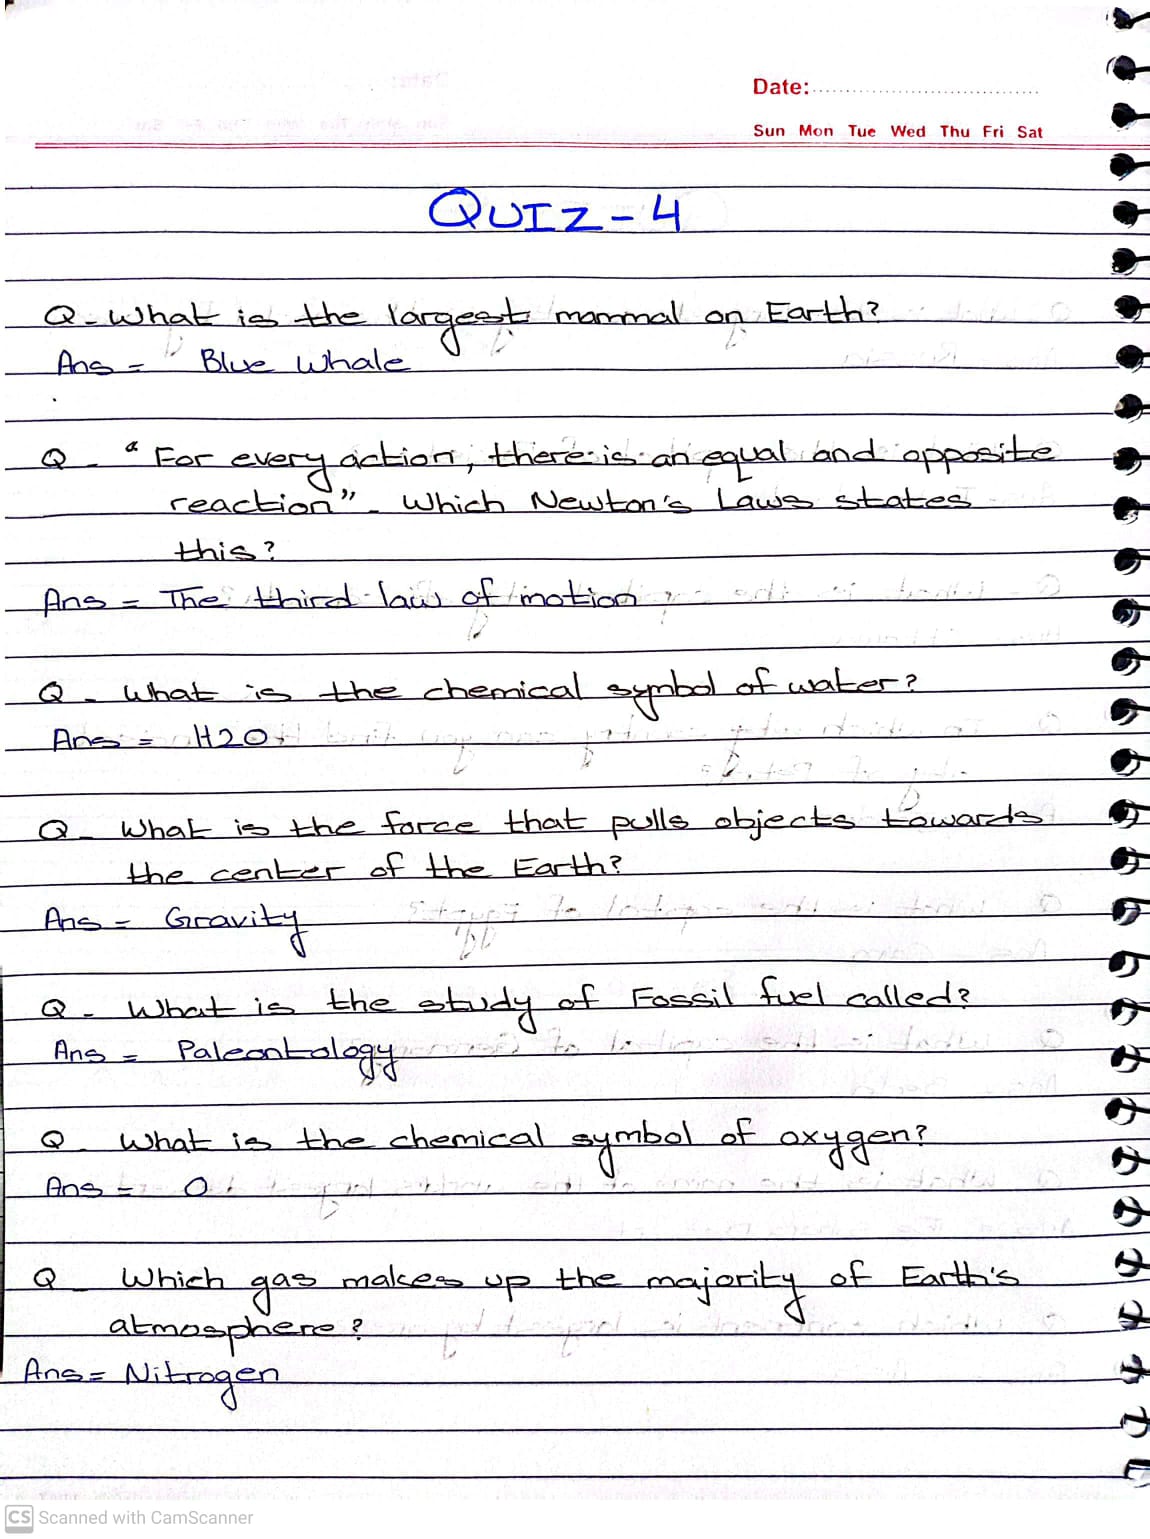 Date:
Sun Mon Tue Wed Thu Fri Sat
QUIZ-4
Q- What is the largest mammal on Earth?
Ans = Blue Whale
Q - “ For every action, there is an equal and opposite
reaction” - Which Newton's Laws states
this?
Ans = The third law of motion
Q - What is the chemical symbol of water?
Ans = H2O
Q - What is the force that pulls objects towards
the center of the Earth?
Ans = Gravity
Q - What is the study of Fossil fuel called?
Ans = Paleontology
Q - What is the chemical symbol of oxygen?
Ans = O
Q - Which gas makes up the majority of Earth's
atmosphere?
Ans = Nitrogen
CS Scanned with CamScanner